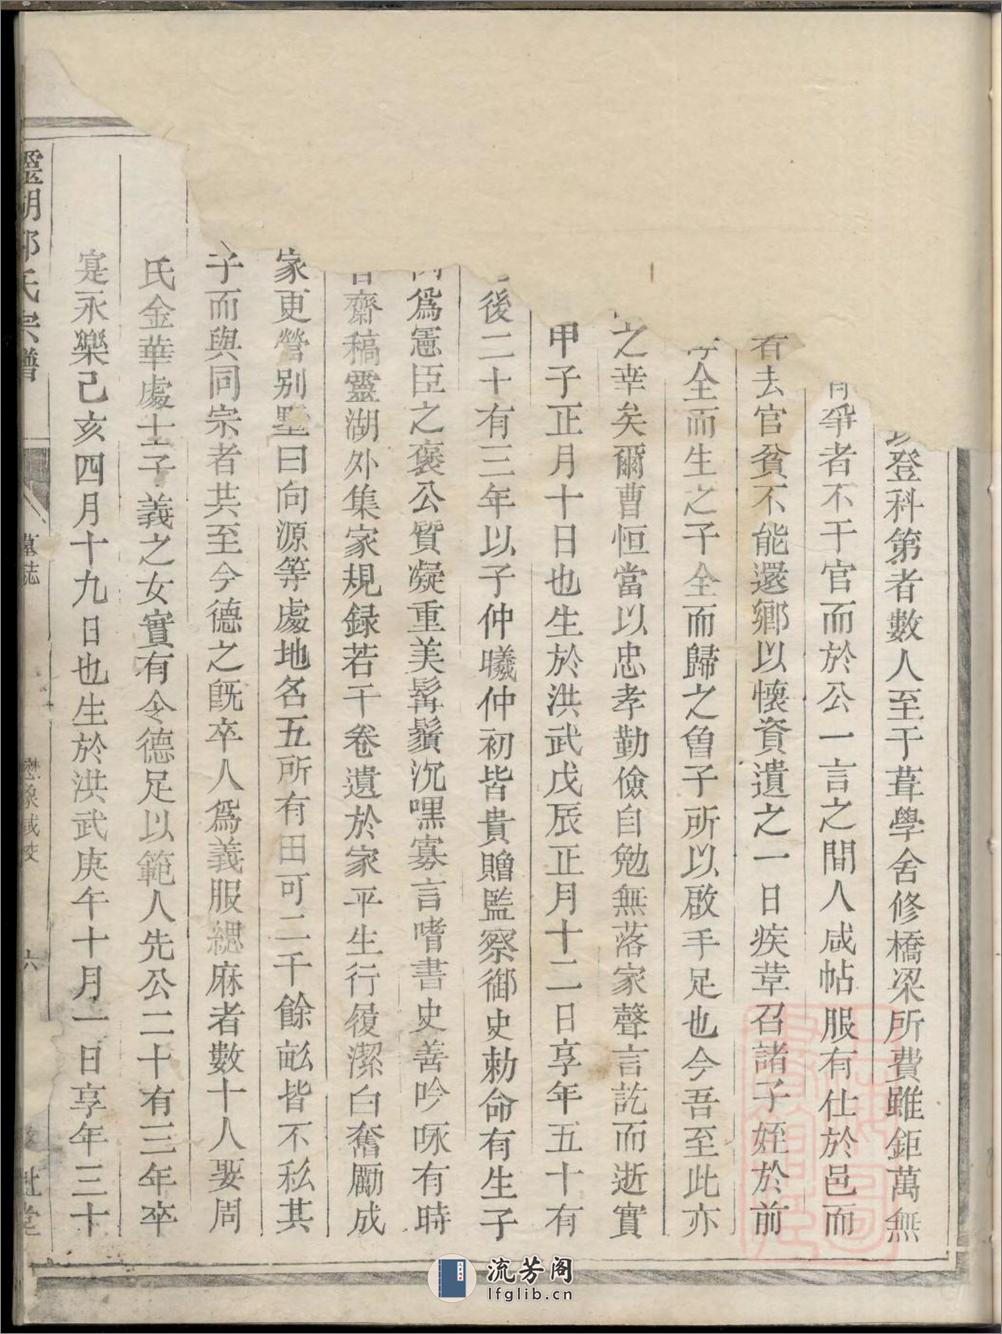 登科第者數人至于葺學舍修橋梁所費雖鉅萬無
爭者不干官而於公一言之間人咸帖服有仕於邑而
有去官貧不能還鄉以懷資遺之一日疾革召諸子姪於前
全而生之子全而歸之曾子所以啟手足也今吾至此亦
之幸矣爾曹恒當以忠孝勤儉自勉無落家聲言訖而逝實
甲子正月十日也生於洪武戊辰正月十二日享年五十有
後二十有三年以子仲曦仲初皆貴贈監察御史勅命有生子
為憲臣之褒公質凝重美髯鬚沉嘿寡言嗜書史善吟咏有時
齋稿靈湖外集家規録若干卷遺於家平生行履潔白奮勵成
家更營别墅曰向源等處地名五所有田可二千餘畝皆不私其
子而與同宗者共至今德之旣卒人爲義服緦麻者數十人娶周
氏金華處士子義之女實有令德足以範人先公二十有三年卒
寔永樂己亥四月十九日也生於洪武庚午十月一日享年三十
靈湖郭氏宗譜
墓誌
六
流芳阁
lfglib.cn